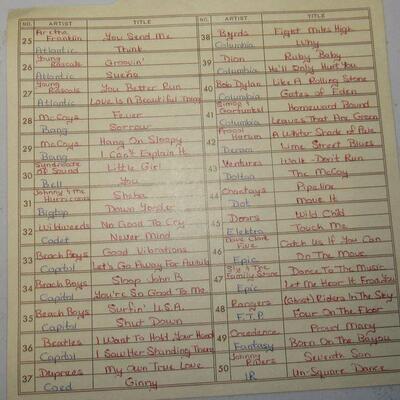 NO. ARTIST TITLE
25 Aretha Franklin You Send Me
Atlantic Think
26 Young Rascals Groovin'
Atlantic Sueño
27 Young Rascals You Better Run
Atlantic Love Is A Beautiful Thing
28 McCoys Fever
Bang Sorrow
29 McCoys Hang On Sloopy
Bang I Can't Explain It
30 Syndicate Of Sound Little Girl
Bell You
31 Johnny & The Hurricanes Sheba
Bigtop Down Yonder
32 Wildweeds No Good To Cry
Cadet Never Mind
33 Beach Boys Good Vibrations
Capitol Let's Go Away For Awhile
34 Beach Boys Sloop John B.
Capitol You're So Good To Me
35 Beach Boys Surfin' U.S.A.
Capitol Shut Down
36 Beatles I Want To Hold Your Hand
Capitol I Saw Her Standing There
37 Duprees My Own True Love
Coed Ginny
NO. ARTIST TITLE
38 Byrds Eight Miles High
Columbia Why
39 Dion Ruby Baby
Columbia He'll Only Hurt You
40 Bob Dylan Like A Rolling Stone
Columbia Gates of Eden
41 Simon & Garfunkel Homeward Bound
Columbia Leaves That Are Green
42 Procol Harum A Whiter Shade of Pale
Deram Lime Street Blues
43 Ventures Walk-Don't Run
Dolton The McCoy
44 Chantays Pipeline
Dot Move It
45 Doors Wild Child
Elektra Touch Me
46 Dave Clark Five Catch Us If You Can
Epic On The Move
47 Sly & The Family Stone Dance To The Music
Epic Let Me Hear It From You
48 Rangers (Ghost) Riders In The Sky
F.T.P. Four On The Floor
49 Creedence Proud Mary
Fantasy Born On The Bayou
50 Johnny Rivers Seventh Son
IR Un-Square Dance